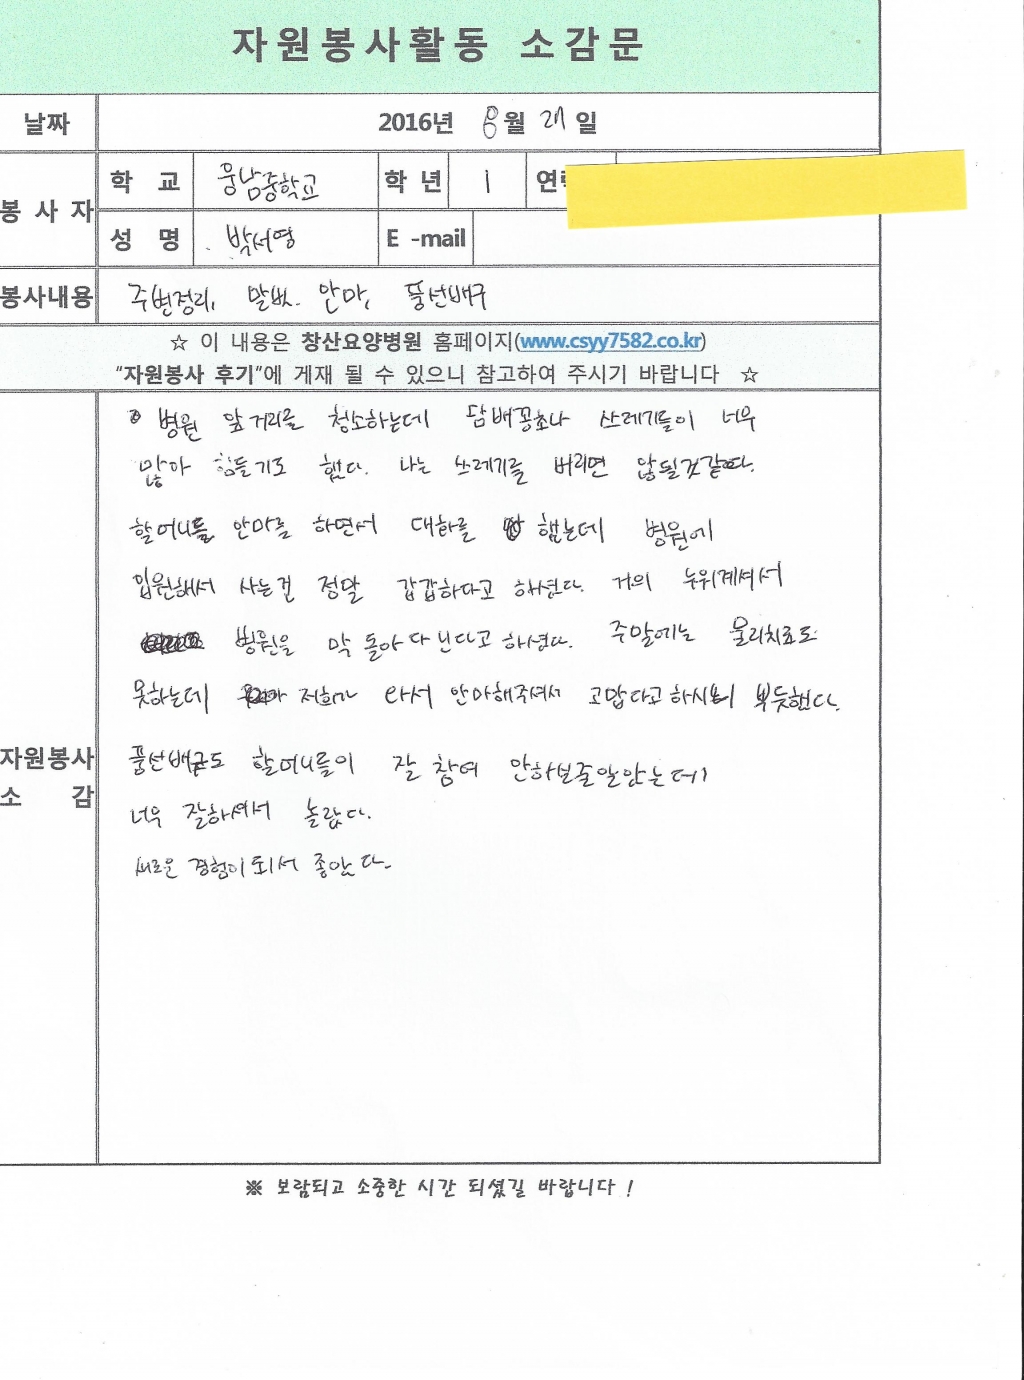 자원봉사활동 소감문
날짜 2016년 8월 21일
봉사자 학 교 웅남중학교 학년 1
성 명 박서영 E-mail
봉사내용 주변정리, 말벗. 안마, 풍선배구
☆ 이 내용은 창산요양병원 홈페이지(www.csyy7582.co.kr)
"자원봉사 후기"에 게재 될 수 있으니 참고하여 주시기 바랍니다 ☆
자원봉사 소감
병원 앞 거리를 청소하는데 담배꽁초나 쓰레기들이 너무
많아 힘들기도 했다. 나는 쓰레기를 버리면 않될것같다.
할머니들 안마를 하면서 대화를 했는데 병원에
입원해서 사는건 정말 갑갑하다고 하셨다. 거의 누워계셔서
병원을 막 돌아 다닌다고 하셨다. 주말에는 물리치료도
못하는데 저희가 와서 안마해주셔서 고맙다고하시니 뿌듯했다.
풍선배구도 할머니들이 잘 참여 안하실줄알았는데
너무 잘하셔서 놀랐다.
새로운 경험이 되서 좋았다.
※ 보람되고 소중한 시간 되셨길 바랍니다!